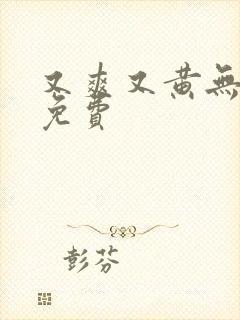 又爽又黄無
免費
彭芬